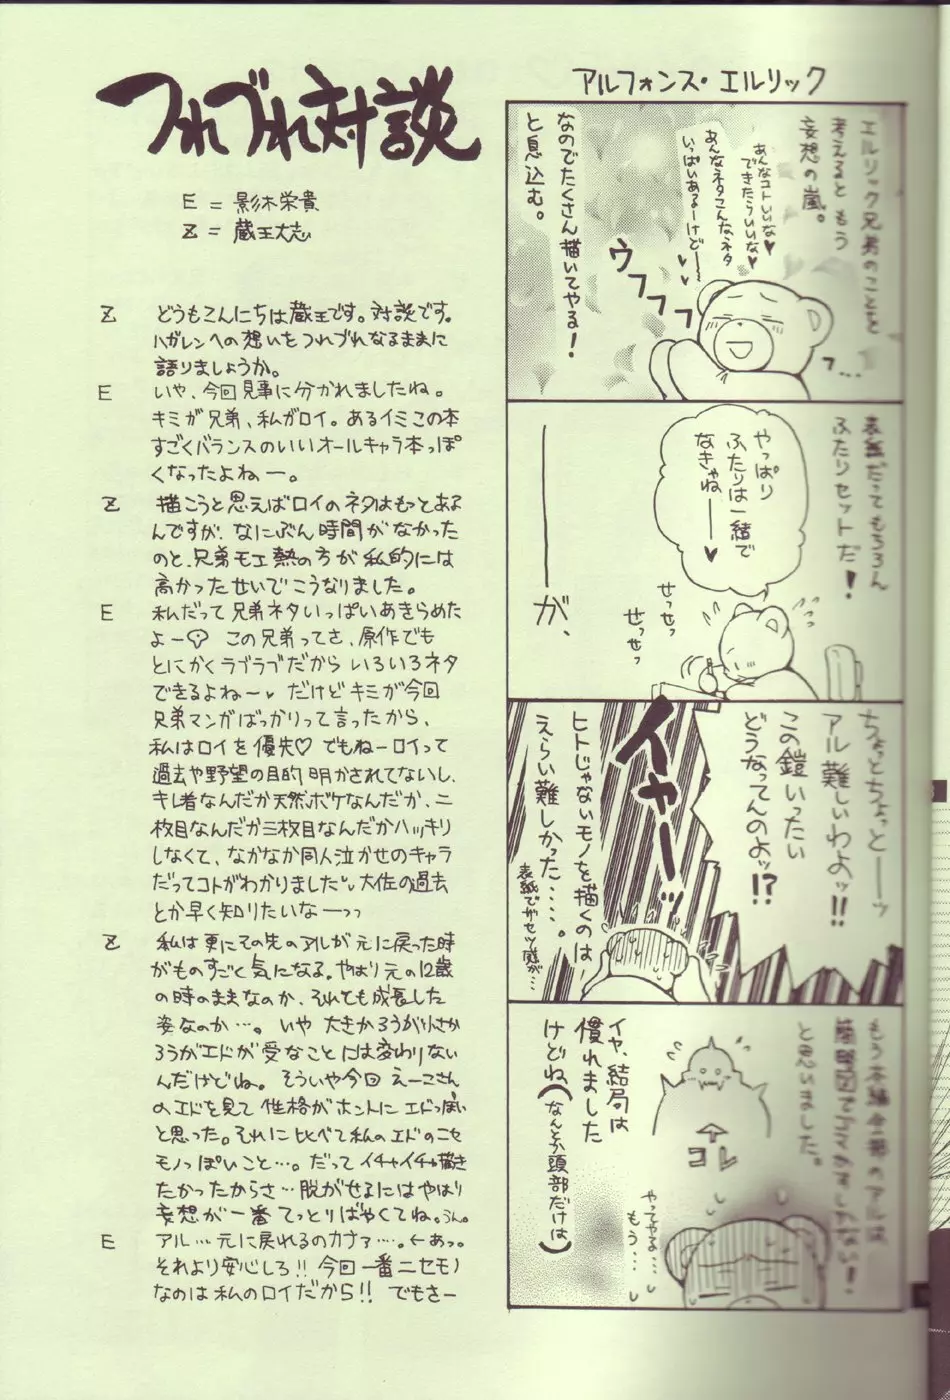 つれづれ対談
E = 影木栄貴
Z = 蔵王大志
Z どうもこんにちは蔵王です。対談です。
ハガレンへの想いをつれづれなるままに
語りましょうか。
E いや、今回見事に分かれましたね。
キミが兄弟、私がロイ。あるイミこの本
すごくバランスのいいオールキャラ本っぽ
くなったよねー。
Z 描こうと思えばロイのネタはもっとあるよ
んですが、なにぶん時間がなかった
のと、兄弟モエ熱の方が私的には
高かったせいでこうなりました。
E 私だって兄弟ネタいっぱいあきらめた
よー この兄弟ってさ、原作でも
とにかくラブラブだからいろいろネタ
できるよねー♥ だけどキミが今回
兄弟マンガばっかりって言ったから、
私はロイを優先♡ でもねーロイって
過去や野望の目的明かされてないし、
キレ者なんだか天然ボケなんだか、二
枚目なんだか三枚目なんだかハッキリ
しなくて、なかなか同人泣かせのキャラ
だってコトがわかりました。大佐の過去
とか早く知りたいなーっっ
Z 私は更にその先のアルが元に戻った時
がものすごく気になる。やはり元の12歳
の時のままなのか、それとも成長した
姿なのか…。いや大きかろうが小さか
ろうがエドが受なことには変わりない
んだけどね。そういや今回えーこさん
のエドを見て性格がホントにエドっぽい
と思った。それに比べて私のエドのニセ
モノっぽいこと…。だってイチャイチャ描き
たかったからさ…脱がせるにはやはり
妄想が一番てっとりばやくてね。うん。
E アル…元に戻れるのカナァ…。←あっ。
それより安心しろ!! 今回一番ニセモノ
なのは私のロイだから!! でもさー
アルフォンス・エルリック
エルリック兄弟のことを
考えるともう
妄想の嵐。
あんなコトいいな♥
できたらいいな♥
あんなネタこんなネタ
いっぱいあるーけどー
ウフフフフ
フ…
なのでたくさん描いてやる!
と息込む。
表紙だってもちろん
ふたりセットだ!
やっぱり
ふたりは一緒で
なきゃねー♥
せっせっ
せっせっ
――が、
ちょっとちょっとーッ
アル難しいわよッ!!
この鎧いったい
どうなってんのよッ!?
イヤーッ
ヒトじゃないモノを描くのは
えらい難しかった….。
もう本編全部のアルは
簡略図でゴマかすしかない!
と思いました。
コレ
イヤ、結局は
慣れました
けどね(なんとか頭部だけは)
やってやる…
もう…